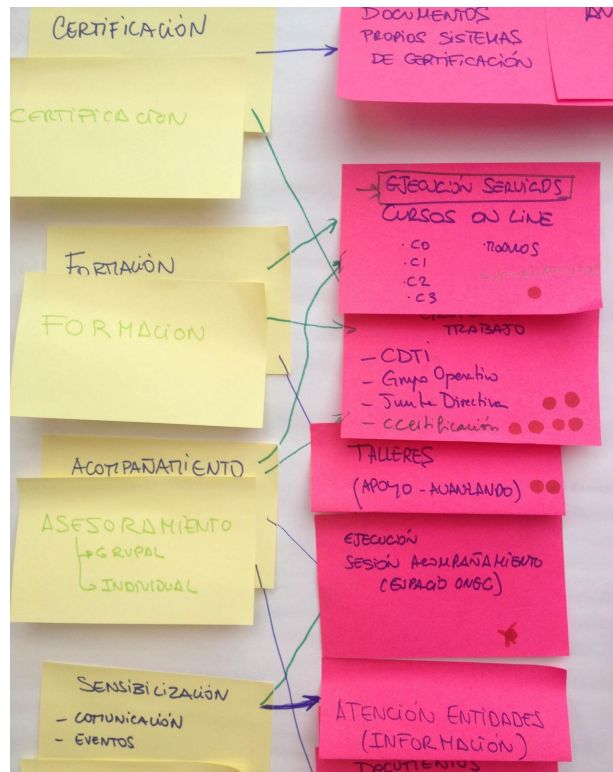 CERTIFICACIÓN
CERTIFICACION
FORMACIÓN
FORMACION
ACOMPAÑAMIENTO
ASESORAMIENTO
GRUPAL
INDIVIDUAL
SENSIBILIZACIÓN
- COMUNICACIÓN
- EVENTOS
DOCUMENTOS
PROPIOS SISTEMAS
DE CERTIFICACIÓN
EJECUCIÓN SERVICIOS
CURSOS ON LINE
· C0
· C1
· C2
· C3
TRABAJO
- CDTI
- Grupo Operativo
- Junta Directiva
- CCertificación
TALLERES
(APOYO - AVANZANDO)
EJECUCIÓN
SESIÓN ACOMPAÑAMIENTO
(ESPACIO ONGC)
ATENCIÓN ENTIDADES
(INFORMACIÓN)
DOCUMENTOS